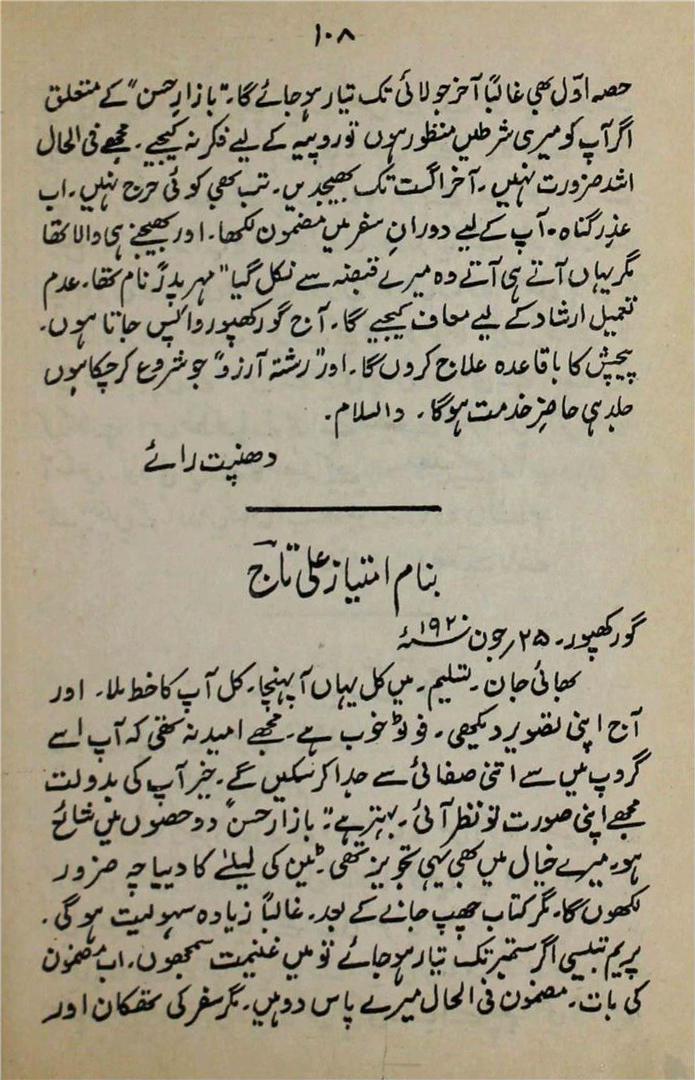 ۱۰۸
حصہ اوّل بھی غالباً آخر جولائی تک تیار ہو جائے گا۔ "بازارِ حسن" کے متعلق
اگر آپ کو میری شرطیں منظور ہوں تو روپیہ کے لیے فکر نہ کیجیے۔ مجھے فی الحال
اشد ضرورت نہیں۔ آخر اگست تک بھیجدیں۔ تب بھی کوئی حرج نہیں۔ اب
عذرِ گناہ۔ آپ کے لیے دورانِ سفر میں مضمون لکھا۔ اور بھیجنے ہی والا تھا
مگر یہاں آتے ہی آتے وہ میرے قبضہ سے نکل گیا "مہر پدر" نام تھا۔ عدم
تعمیل ارشاد کے لیے معاف کیجیے گا۔ آج گورکھپور واپس جاتا ہوں۔
پیچش کا باقاعدہ علاج کروں گا۔ اور "رشتہ آرزو" جو شروع کر چکا ہوں
جلد ہی حاضرِ خدمت ہوگا۔ والسلام۔
دھنپت رائے
بنام امتیاز علی تاج
گورکھپور۔ ۲۵؍ جون ۱۹۲۰ء
بھائی جان۔ تسلیم۔ میں کل یہاں آ پہنچا۔ کل آپ کا خط ملا۔ اور
آج اپنی تصویر دیکھی۔ فوٹو خوب ہے۔ مجھے امید نہ تھی کہ آپ اسے
گروپ میں سے اتنی صفائی سے جدا کر سکیں گے۔ خیر آپ کی بدولت
مجھے اپنی صورت تو نظر آئی۔ بہتر ہے "بازار حسن" دو حصوں میں شائع
ہو۔ میرے خیال میں بھی یہی تجویز تھی۔ ٹین کی لیلےٰ کا دیباچہ ضرور
لکھوں گا۔ مگر کتاب چھپ جانے کے بعد۔ غالباً زیادہ سہولیت ہوگی۔
پریم بتیسی اگر ستمبر تک تیار ہو جائے تو میں غنیمت سمجھوں۔ اب مضمون
کی بات۔ مضمون فی الحال میرے پاس دو ہیں۔ مگر سفر کی تھکان اور